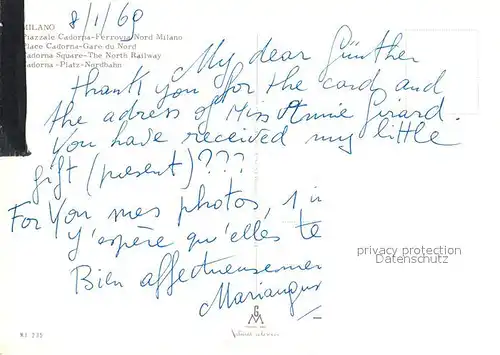 8/1/60
MILANO
Piazzale Cadorna-Ferrovia Nord Milano
Place Cadorna-Gare du Nord
Cadorna Square-The North Railway
Cadorna-Platz-Nordbahn
My dear Günther
thank you for the card and
the adress of Miss Annie Girard.
You have received my little
gift (present)???
For You mes photos, 1 in
J'espère qu'elles te
Bien affectueusemen
Mariangus
privacy protection
Datenschutz
MI 235